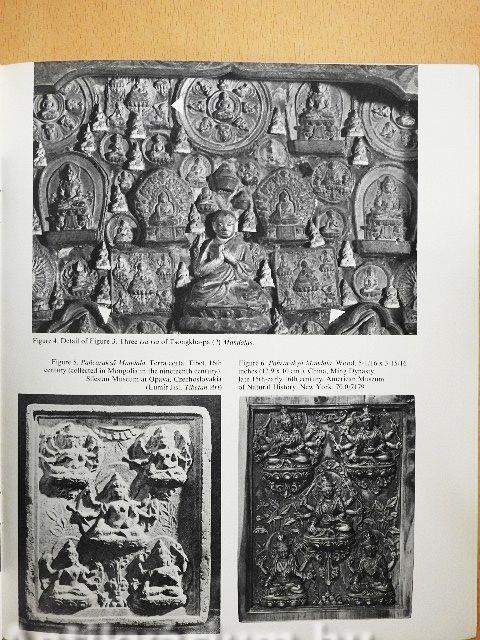 Figure 4. Detail of Figure 3. Three tsa tsa of Tsongkha-pa (?) Mandalas.
Figure 5. Pañcarakṣā Mandala. Terra cotta. Tibet, 16th
century (collected in Mongolia in the nineteenth century).
Silesian Museum at Opava, Czechoslovakia
(Lumír Jisl, Tibetan Art)
Figure 6. Pañcarakṣā Mandala. Wood, 5-1/16 x 3-15/16
inches (12.9 x 10 cm.). China, Ming Dynasty,
late 15th-early 16th century. American Museum
of Natural History, New York, 70.0/7179